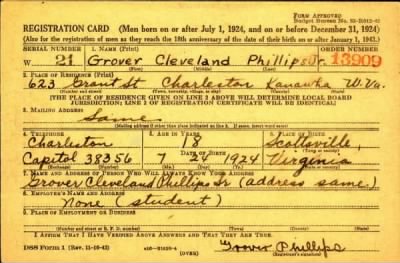 FORM APPROVED
REGISTRATION CARD (Men born on or after July 1, 1924, and on or before December 31, 1924)
(Also for the registration of men as they reach the 18th anniversary of the date of their birth on or after January 1, 1943.)
SERIAL NUMBER 1. NAME (Print) ORDER NUMBER
W 21 Grover Cleveland Phillips Jr. 13909
(First) (Middle) (Last)
2. PLACE OF RESIDENCE (Print)
623 Grant St. Charleston Kanawha W. Va.
(Number and street) (Town, township, village, or city) (County) (State)
[THE PLACE OF RESIDENCE GIVEN ON LINE 2 ABOVE WILL DETERMINE LOCAL BOARD
JURISDICTION; LINE 2 OF REGISTRATION CERTIFICATE WILL BE IDENTICAL]
3. MAILING ADDRESS
Same
[Mailing address if other than place indicated on line 2. If same, insert word same]
4. TELEPHONE 5. AGE IN YEARS 6. PLACE OF BIRTH
Charleston 18 Scottsville,
DATE OF BIRTH (Town or county)
Capitol 38356 7 24 1924 Virginia
7. NAME AND ADDRESS OF PERSON WHO WILL ALWAYS KNOW YOUR ADDRESS
Grover Cleveland Phillips Sr (address same)
8. EMPLOYER'S NAME AND ADDRESS
None (student)
9. PLACE OF EMPLOYMENT OR BUSINESS
(Number and street or R. F. D. number) (Town) (County) (State)
I AFFIRM THAT I HAVE VERIFIED ABOVE ANSWERS AND THAT THEY ARE TRUE.
DSS Form 1 (Rev. 11-16-42) (OVER) Grover Phillips
(Registrant's signature)